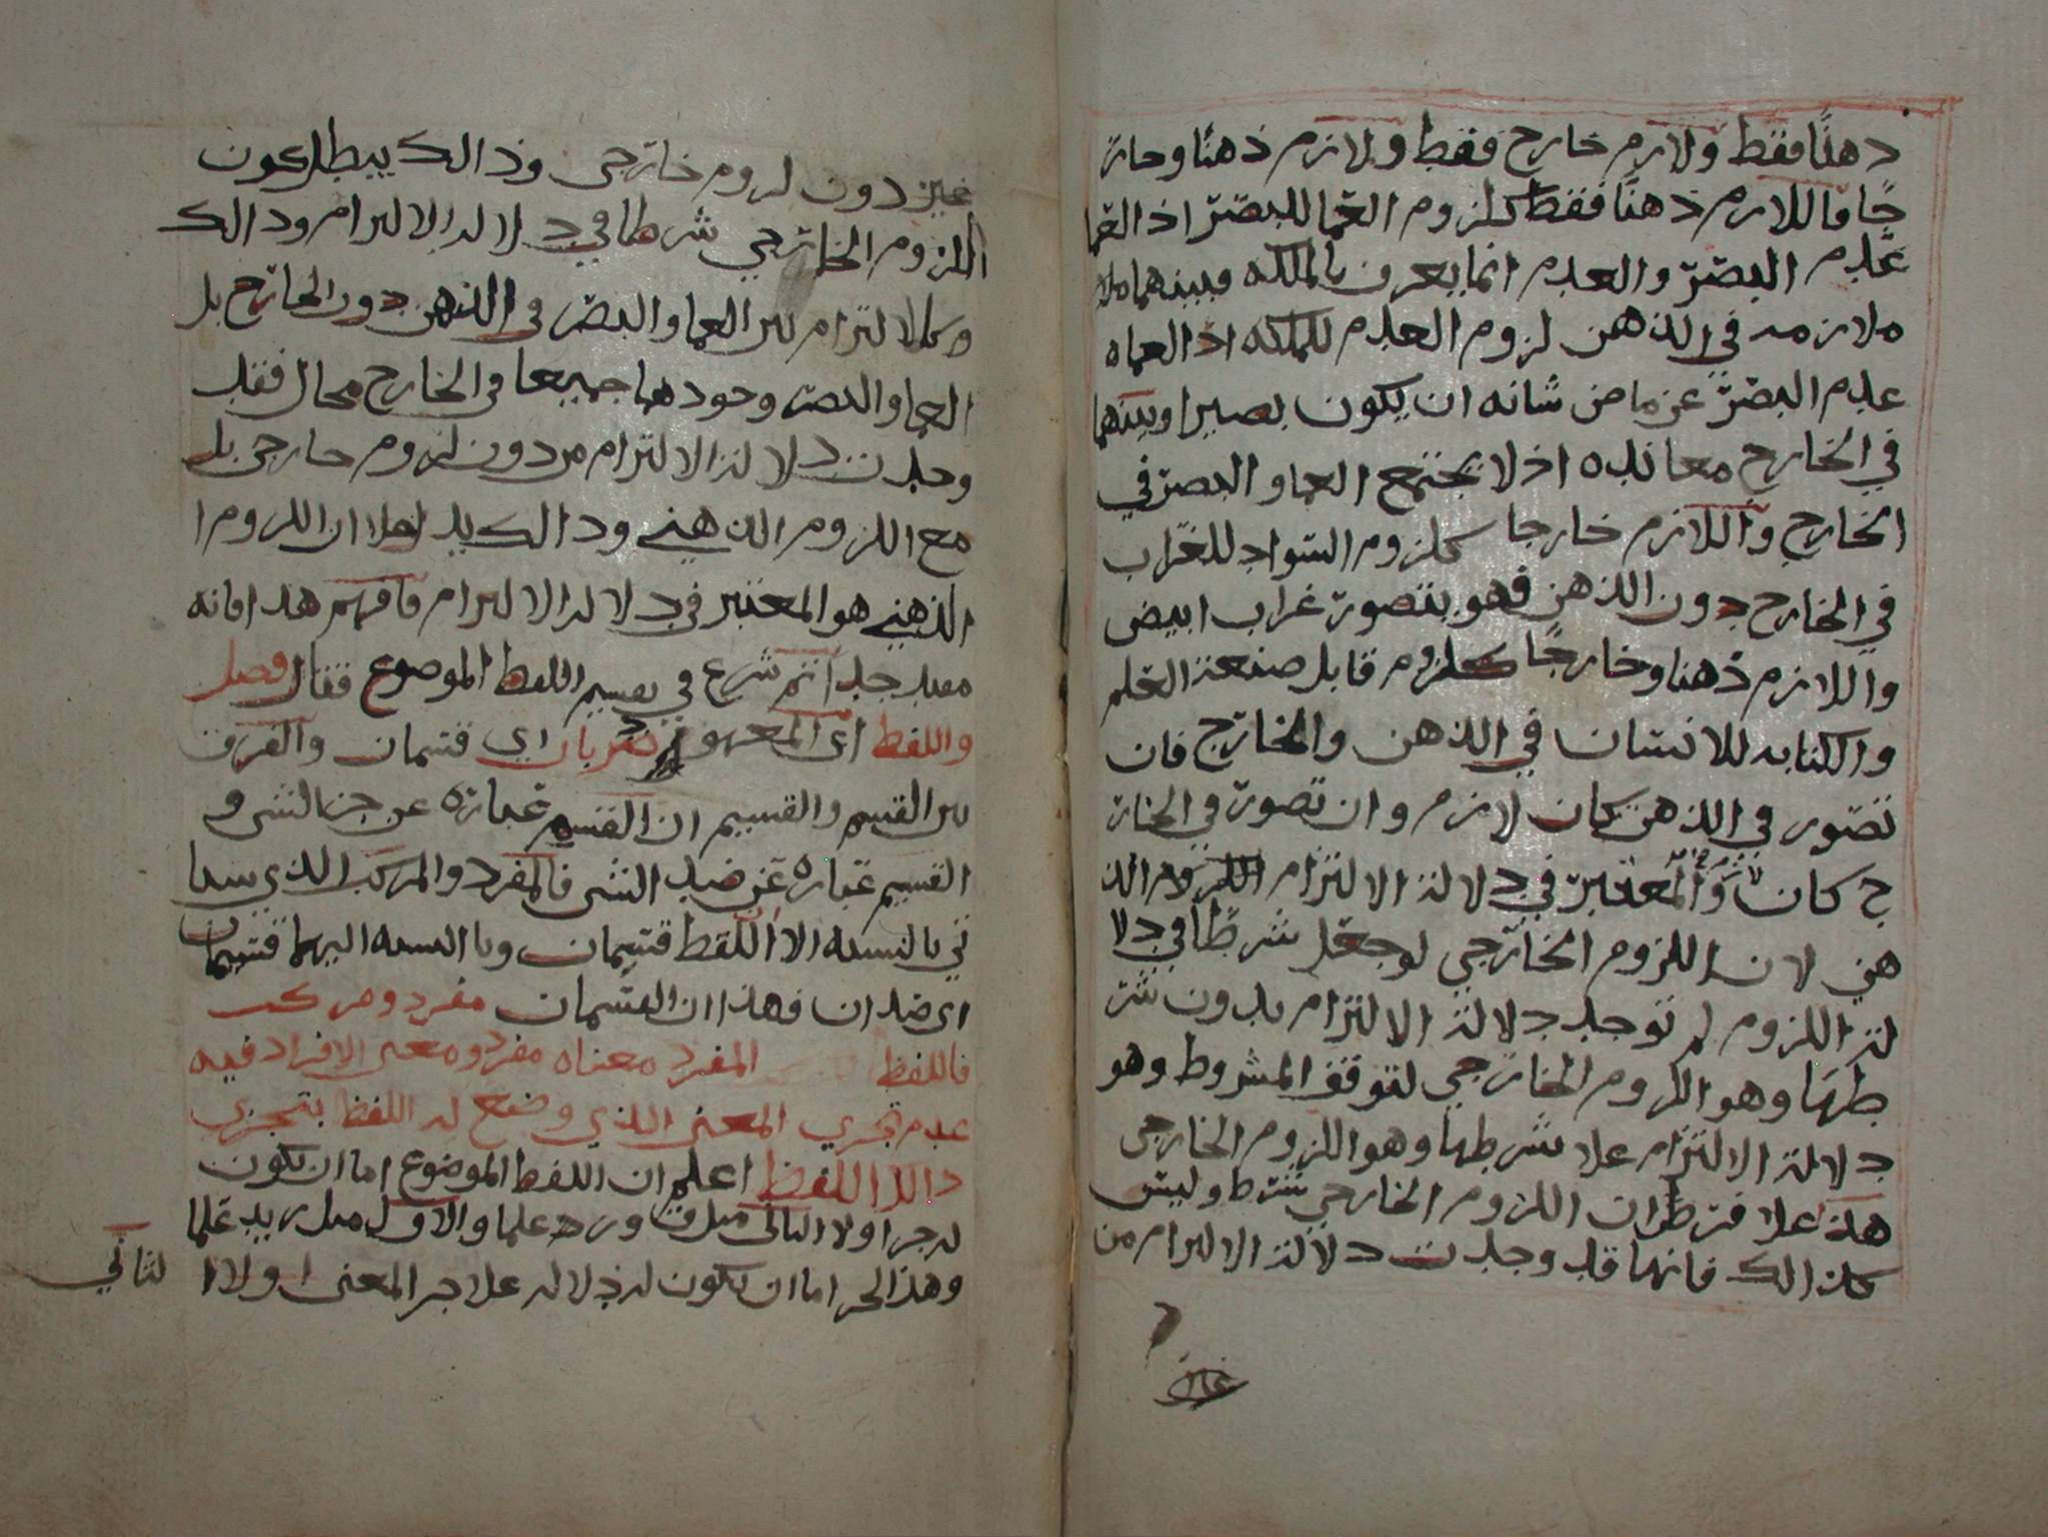 دهنًا فقط ولازم خارج فقط ولازم ذهنًا وخار
جًا فاللازم ذهنًا فقط كلزوم العما للبصر اذ العما
عدم البصر والعدم انما يعرف بالملكه وبينهما ملا
ملازمه في الذهن لزوم العدم للملكه اذ العماه
عدم البصر عن ما من شانه ان يكون بصيرا وبينهما
في الخارج معانده اذ لا يجتمع العما والبصر في
الخارج واللازم خارجا كلزوم السواد للغراب
في الخارج دون الذهن فهو يتصور غراب ابيض
واللازم ذهنا وخارجًا كلزوم قابل صنعة العلم
والكتابه للانسان في الذهن والخارج فان
تصور في الذهن كان لازم وان تصور في الخار
ج كان والمعتبر في دلالة الالتزام اللزوم الذ
هني لان اللزوم الخارجي لو جعل شرطًا في دلا
لة اللزوم لم توجد دلالة الالتزام بدون شر
طها وهو اللزوم الخارجي لتوقف المشروط وهو
دلالة الالتزام علا شرطها وهو اللزوم الخارجي
هذ علا فرط ان اللزوم الخارجي شرط وليس
كذالك فانها قد وجدت دلالة الالتزام من
غير
غير دون لزوم خارجي وذالك يبطل كون
اللزوم الخارجي شرطا في دلالة الالتزام وذالك
كالالتزام بين العما والبصر في الذهن دون الخارج بل
العما والبصر وجودهما جميعا في الخارج محال فقد
وجدت دلالة الالتزام من دون لزوم خارجي بل
مع اللزوم الذهني وذالك يدل علا ان اللزوم ا
الذهني هو المعتبر في دلالة الالتزام فافهم هذا فانه
مفيد جدا ثم شرع في تقسيم اللفظ الموضوع فقال فصل
واللفظ اي المعهود ضربان اي قسمان والفرق
بين القسم والقسيم ان القسم عبارة عن جز الشي و
القسيم عبارة عن ضد الشي فالمفرد والمركب الذي سيا
تي بالنسبه الا اللفظ قسمان وبالنسبه اليهما قسيمان
اي ضدان فهذان القسمان مفرد ومركب
فاللفظ المفرد معناه مفرد ومعنى الافراد فيه
عدم تجزي المعنى الذي وضع له اللفظ بتجزي
ذالك اللفظ اعلم ان اللفظ الموضوع اما ان يكون
له جزا ولا الثاني مثل ق و ره علما والاول مثل زيد علما
وهذ الجز اما ان يكون له دلاله علا جز المعنى او لا ا
لثاني